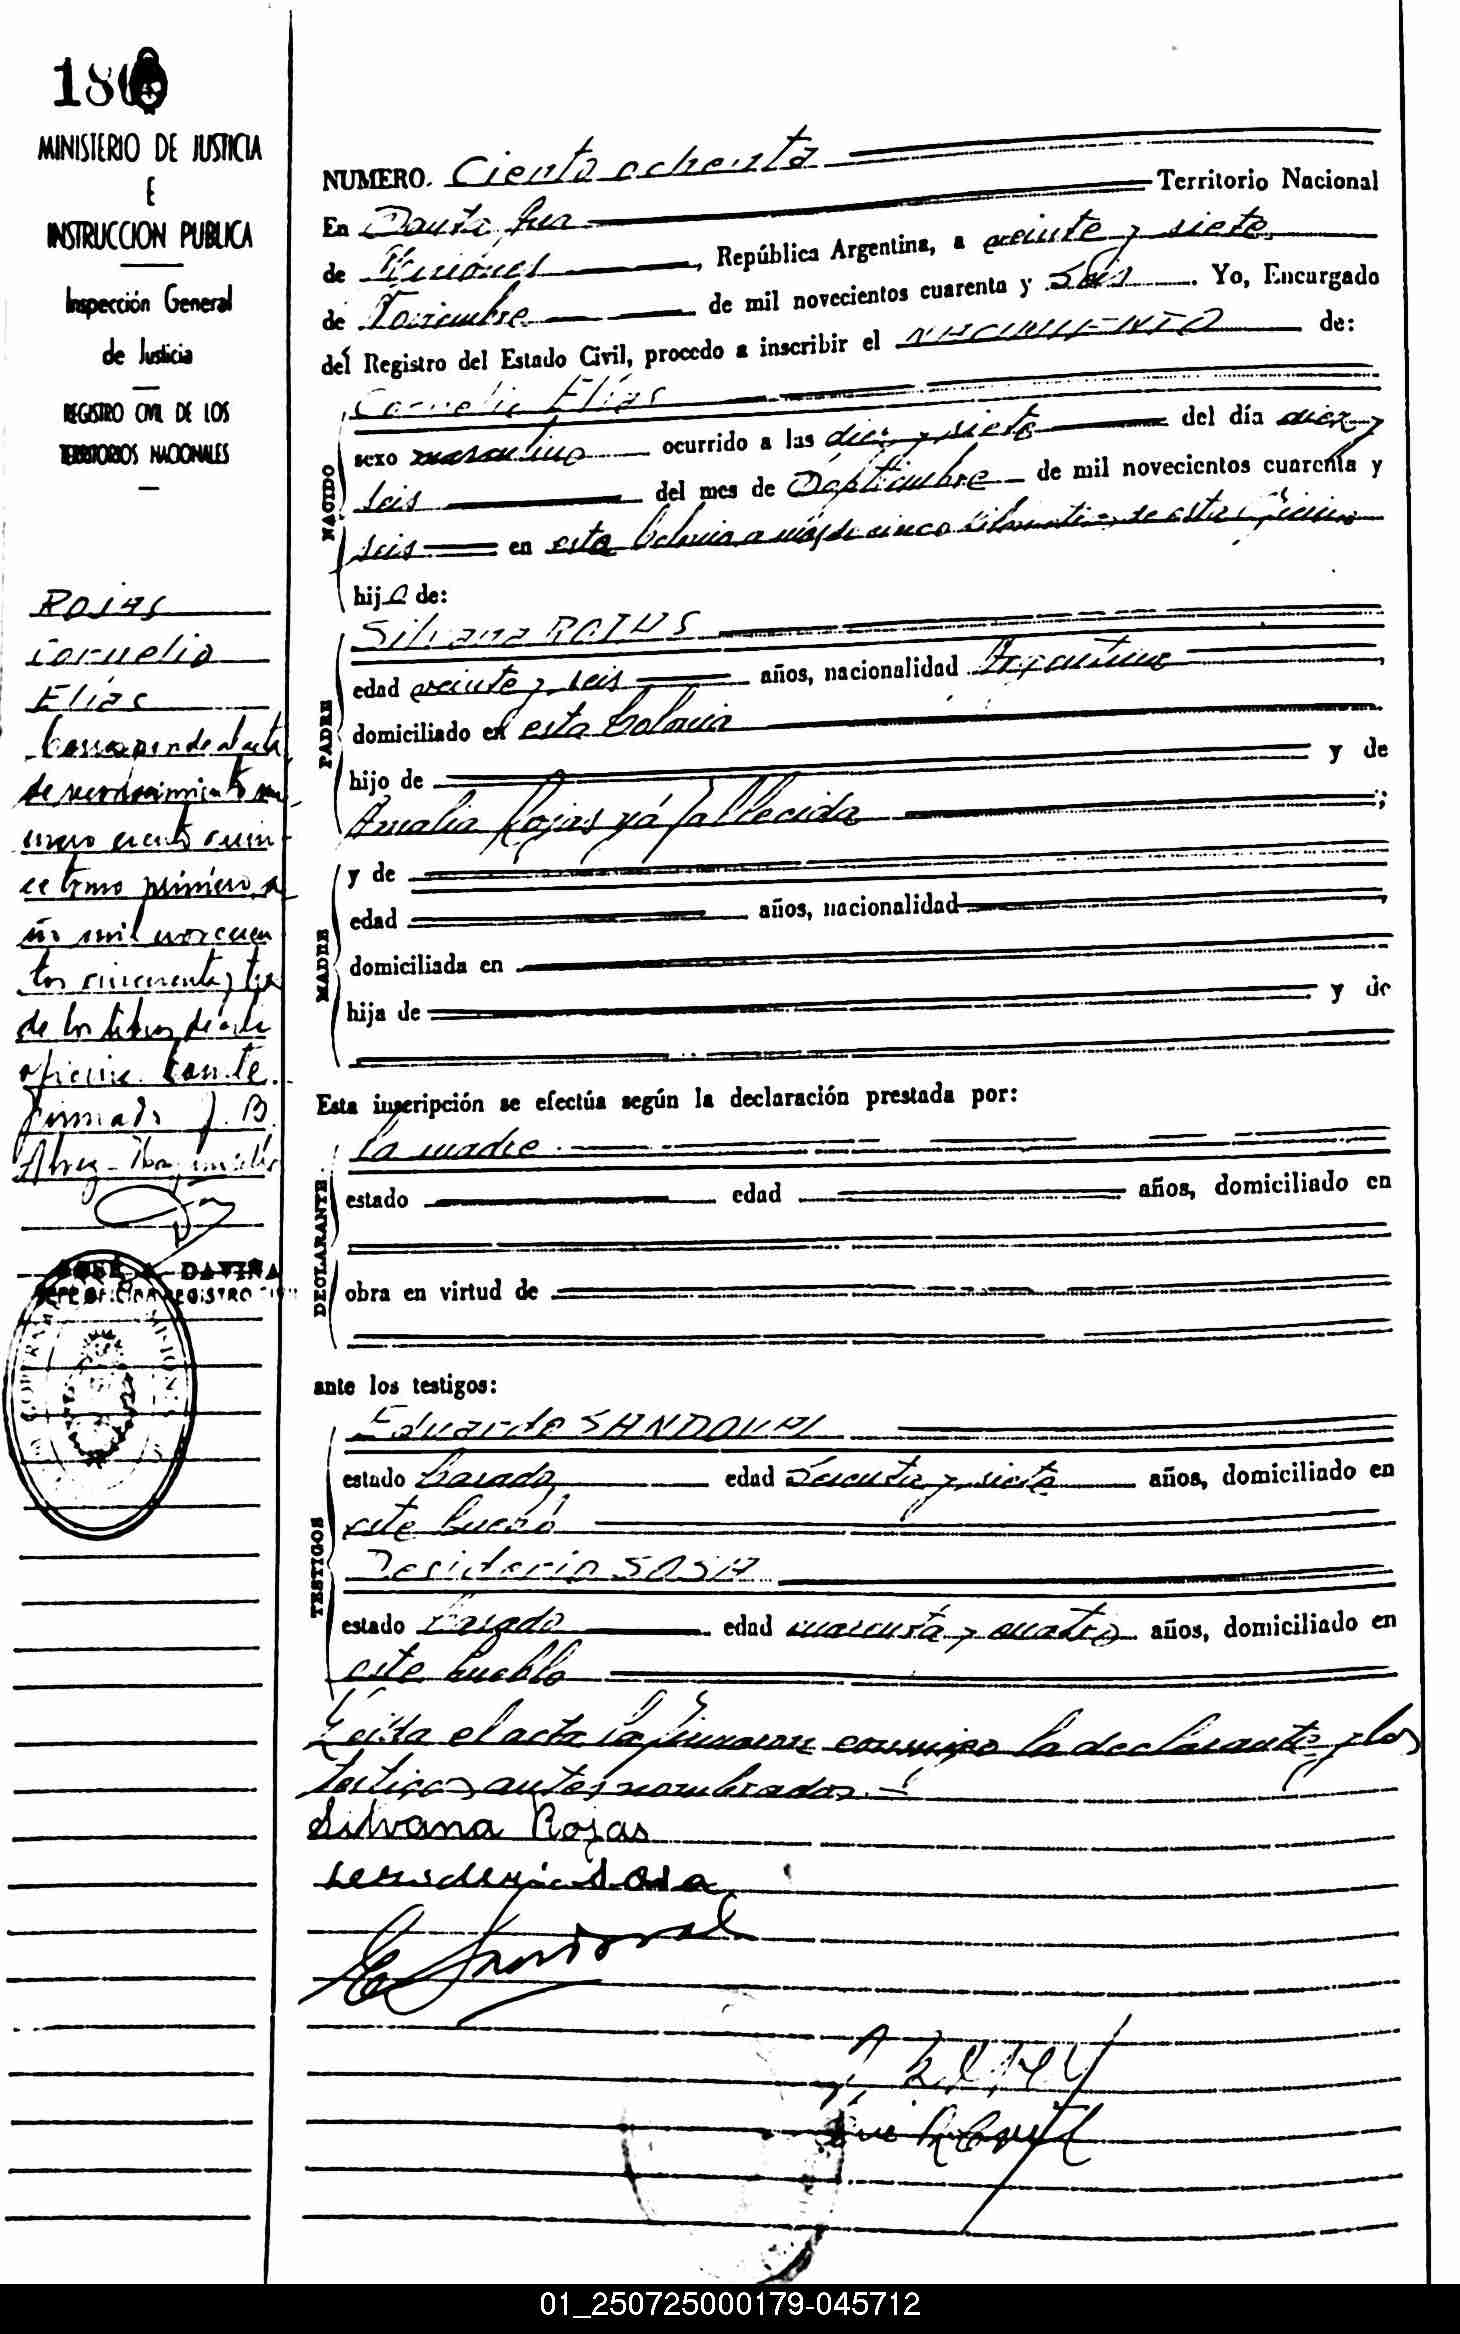 180
MINISTERIO DE JUSTICIA
E
INSTRUCCION PUBLICA
Inspección General
de Justicia
REGISTRO CIVIL DE LOS
TERRITORIOS NACIONALES
ROJAS
Cornelio
Elías
Corresponde al acta
de reconocimiento nu-
mero ciento quin-
ce tomo primero a
ño mil novecien
tos cincuenta y tres
de los libros de esta
oficina. Conste.
Firmado J. B.
Alvez
JOSE A. DAVIÑA
JEFE OFICINA REGISTRO CIVIL
NUMERO. Ciento ochenta
En Santa Ana Territorio Nacional
de Misiones, República Argentina, a veinte y siete
de Noviembre de mil novecientos cuarenta y Seis. Yo, Encargado
del Registro del Estado Civil, procedo a inscribir el NACIMIENTO de:
NACIDO
Cornelio Elías
sexo masculino ocurrido a las diez y siete del día diez y
seis del mes de Septiembre de mil novecientos cuarenta y
seis en esta Colonia a más de cinco kilometros de esta oficina
hijo de:
PADRE
Silvana ROJAS
edad veinte y seis años, nacionalidad Argentina
domiciliado en esta Colonia
hijo de y de
Amalia Rojas ya fallecida ;
MADRE
y de
edad años, nacionalidad
domiciliada en
hija de y de
Esta inscripción se efectúa según la declaración prestada por:
DECLARANTE
La madre
estado edad años, domiciliado en
obra en virtud de
ante los testigos:
TESTIGOS
Eduardo SANDOVAL
estado Casado edad Sesenta y siete años, domiciliado en
este pueblo
Desiderio SOSA
estado Casado edad cuarenta y cuatro años, domiciliado en
este pueblo
Leída el acta la firmaron conmigo la declarante y los
testigos antes nombrados.-
Silvana Rojas
Desiderio Sosa
E. Sandoval
01_250725000179-045712